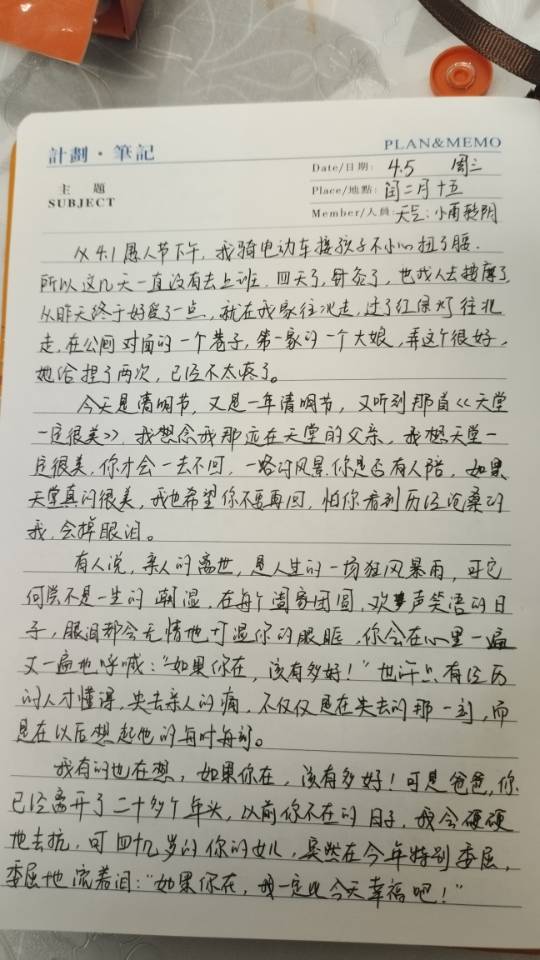 計劃·筆記
PLAN&MEMO
主題
SUBJECT
Date/日期: 4.5 周三
Place/地點: 闰二月十五
Member/人員: 天气:小雨转阴
从4.1愚人节下午，我骑电动车接孩子不小心扭了腰.
所以这几天一直没有去上班，四天了，针灸了，也找人去按摩了
从昨天终于好受了一点，就在我家往北走，过了红绿灯往北
走，在公园对面的一个巷子，第一家的一个大娘，弄这个很好，
她给捏了两次，已经不太疼了。
今天是清明节，又是一年清明节，又听到那首<<天堂
一定很美>>，我想念我那远在天堂的父亲，我想天堂一
定很美，你才会一去不回，一路的风景你是否有人陪，如果
天堂真的很美，我也希望你不要再回，怕你看到历经沧桑的
我，会掉眼泪。
有人说，亲人的离世，是人生的一场狂风暴雨，可它
何尝不是一生的潮湿，在每个阖家团圆，欢声笑语的日
子，眼泪都会无情地打湿你的眼眶，你会在心里一遍
又一遍地呼喊："如果你在，该有多好！"也许只有经历
的人才懂得，失去亲人的痛，不仅仅是在失去的那一刻，而
是在以后想起他的每时每刻。
我有时也在想，如果你在，该有多好！可是爸爸，你
已经离开了二十多个年头，以前你不在的日子，我会硬硬
地去抗，可四十几岁的你的女儿，突然在今年特别委屈，
委屈地流着泪："如果你在，我一定比今天幸福吧！"